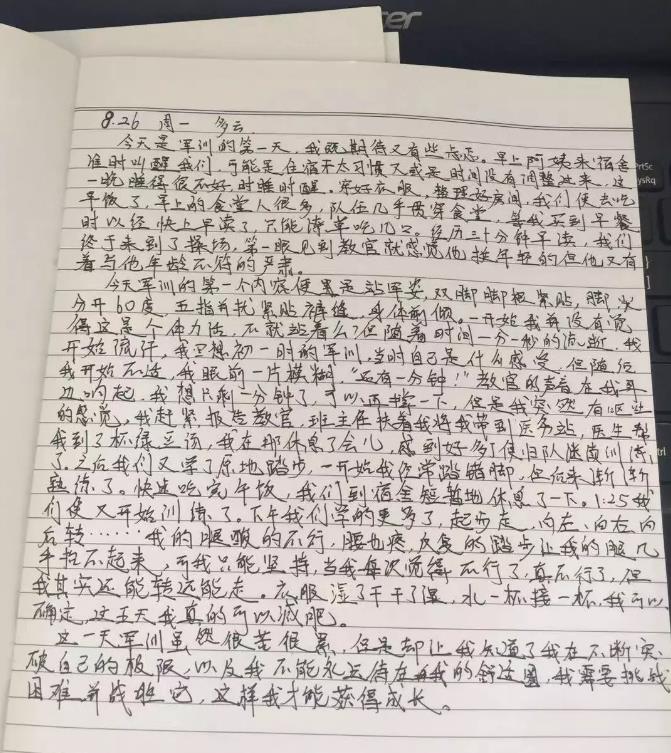 cer
PrtSc
SysRq
8.26 周一 多云
今天是军训的第一天，我既期待又有些忐忑。早上阿姨来宿舍
准时叫醒我们，可能是住宿不太习惯又或是时间没有调整过来，这
一晚睡得很不好，时睡时醒。穿好衣服，整理好房间，我们便去吃
早饭了，早上的食堂人很多，队伍几乎贯穿食堂，等我买到早餐
时以经快上早读了，只能潦草吃几口。经历三十分钟早读，我们
终于来到了操场，第一眼见到教官就感觉他挺年轻的但他又有
着与他年龄不符的严肃。
今天军训的第一个内容便是站军姿，双脚脚根紧贴，脚尖
分开60度，五指并拢紧贴裤缝，身体前倾。一开始我并没有觉
得这是个体力活，不就站着么？但随着时间一分一秒的流逝，我
开始流汗，我回想初一时的军训，当时自己是什么感受，但随后
我开始不适，我眼前一片模糊，“还有一分钟！”教官的声音在我耳
边响起，我想只剩一分钟了，可以再撑一下，但是我突然有呕吐
的感觉，我赶紧报告教官，班主任扶着我将我带到医务站，医生帮
我到了杯绿豆汤，我在那休息了会儿，感到好多了便归队继续训练
了。之后我们又学了原地踏步，一开始我经常踏错脚，但后来渐渐
熟练了。快速吃完午饭，我们到宿舍短暂地休息了一下。1:25我
们便又开始训练了。下午我们学的更多了，起步走，向左、向右、向
后转……我的腿酸的不行，腰也疼，反复的踏步让我的腿几
乎抬不起来，而我只能坚持，当我每次觉得不行了，真不行了，但
我其实还能转还能走。衣服湿了干干了湿，水一杯接一杯，我可以
确定，这五天我真的可以减肥。
这一天军训虽然很苦很累，但是却让我知道了我在不断突
破自己的极限，以及我不能永远待在我的舒适圈，我需要挑战
困难并战胜它，这样我才能获得成长。